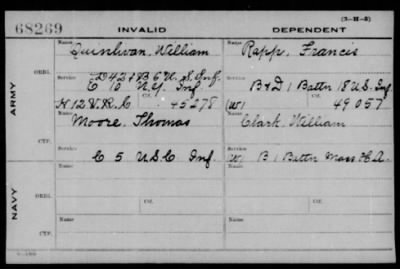 (3-H-3)
68269 INVALID DEPENDENT
Name Quinlivan, William Name Rapp, Francis
ORIG.
Service D 42 & B 6 U.S. Inf. Service
C 10 N.Y. Inf B & D 1 Battn 18 U.S. Inf
ARMY
H 12 V.R.C. Ctf. 45278 (W) Ctf. 49057
Name Moore, Thomas Name Clark, William
CTF.
Service C 5 U.S.C. Inf. Service (W) B 1 Battn Mass H.A.
Name Name
ORIG.
Service Service
NAVY
Ctf. Ctf.
Name Name
CTF.